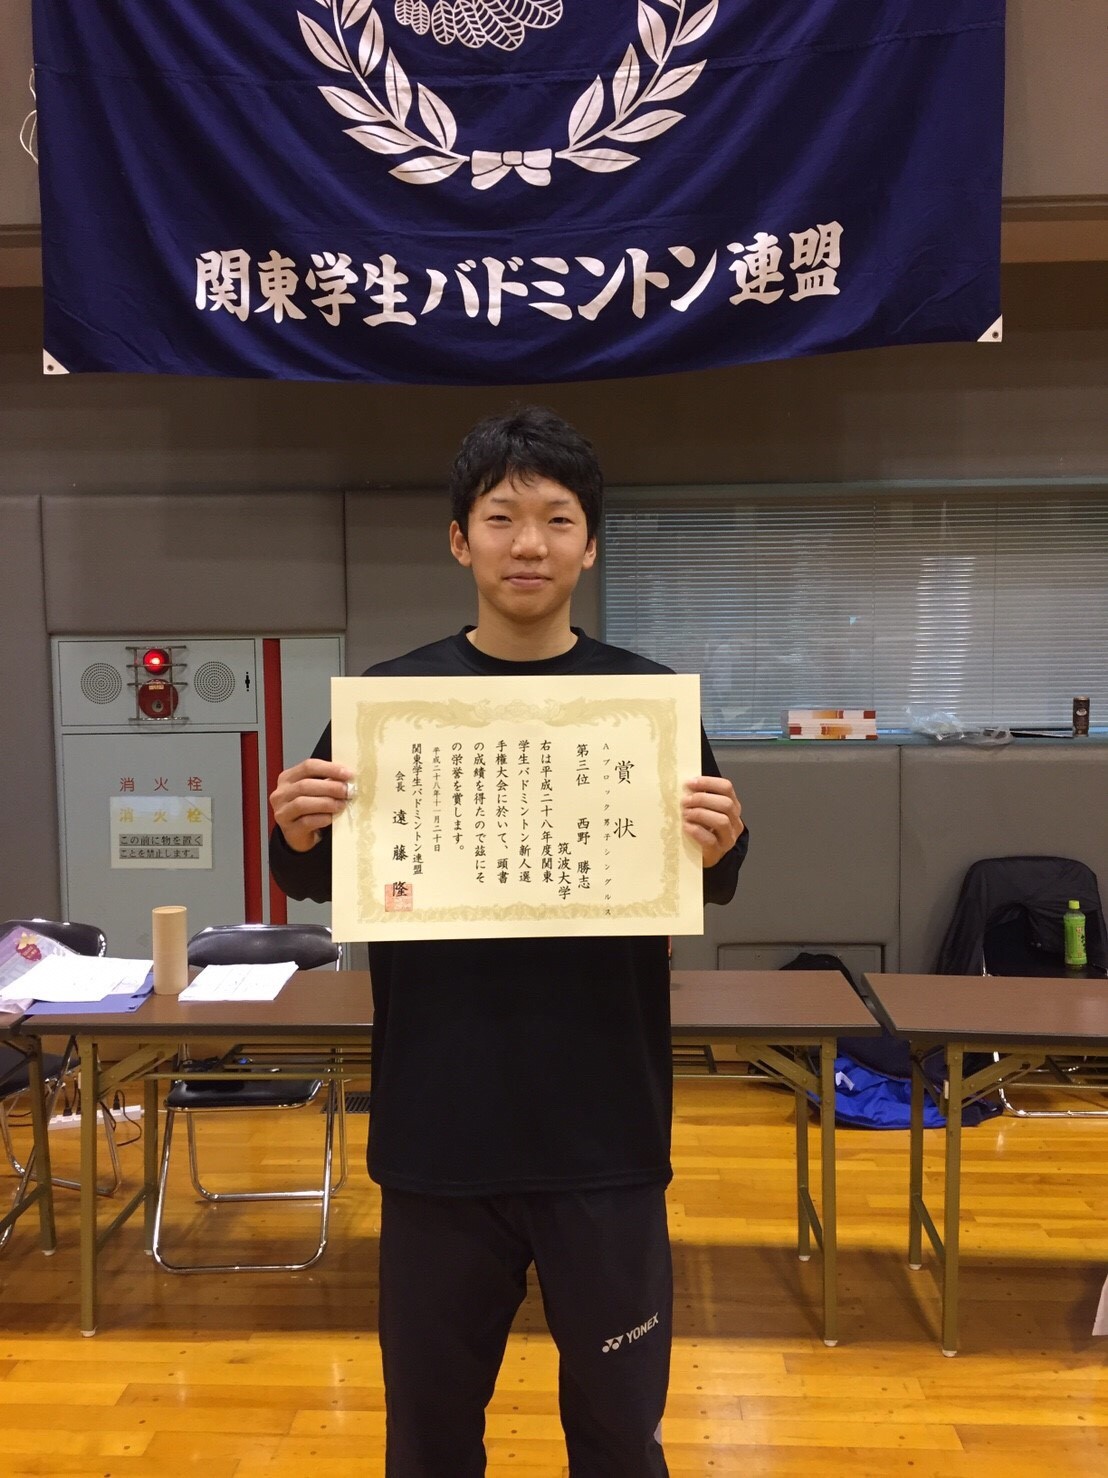 関東学生バドミントン連盟
賞状
Aブロック男子シングルス
第三位 西野 勝志
筑波大学
右は平成二十八年度関東
学生バドミントン新人選
手権大会に於いて、頭書
の成績を得たので茲にそ
の栄誉を賞します。
平成二十八年十一月二十日
関東学生バドミントン連盟
会長 遠藤 隆
消火栓
消火栓
この前に物を置く
ことを禁止します。
YONEX